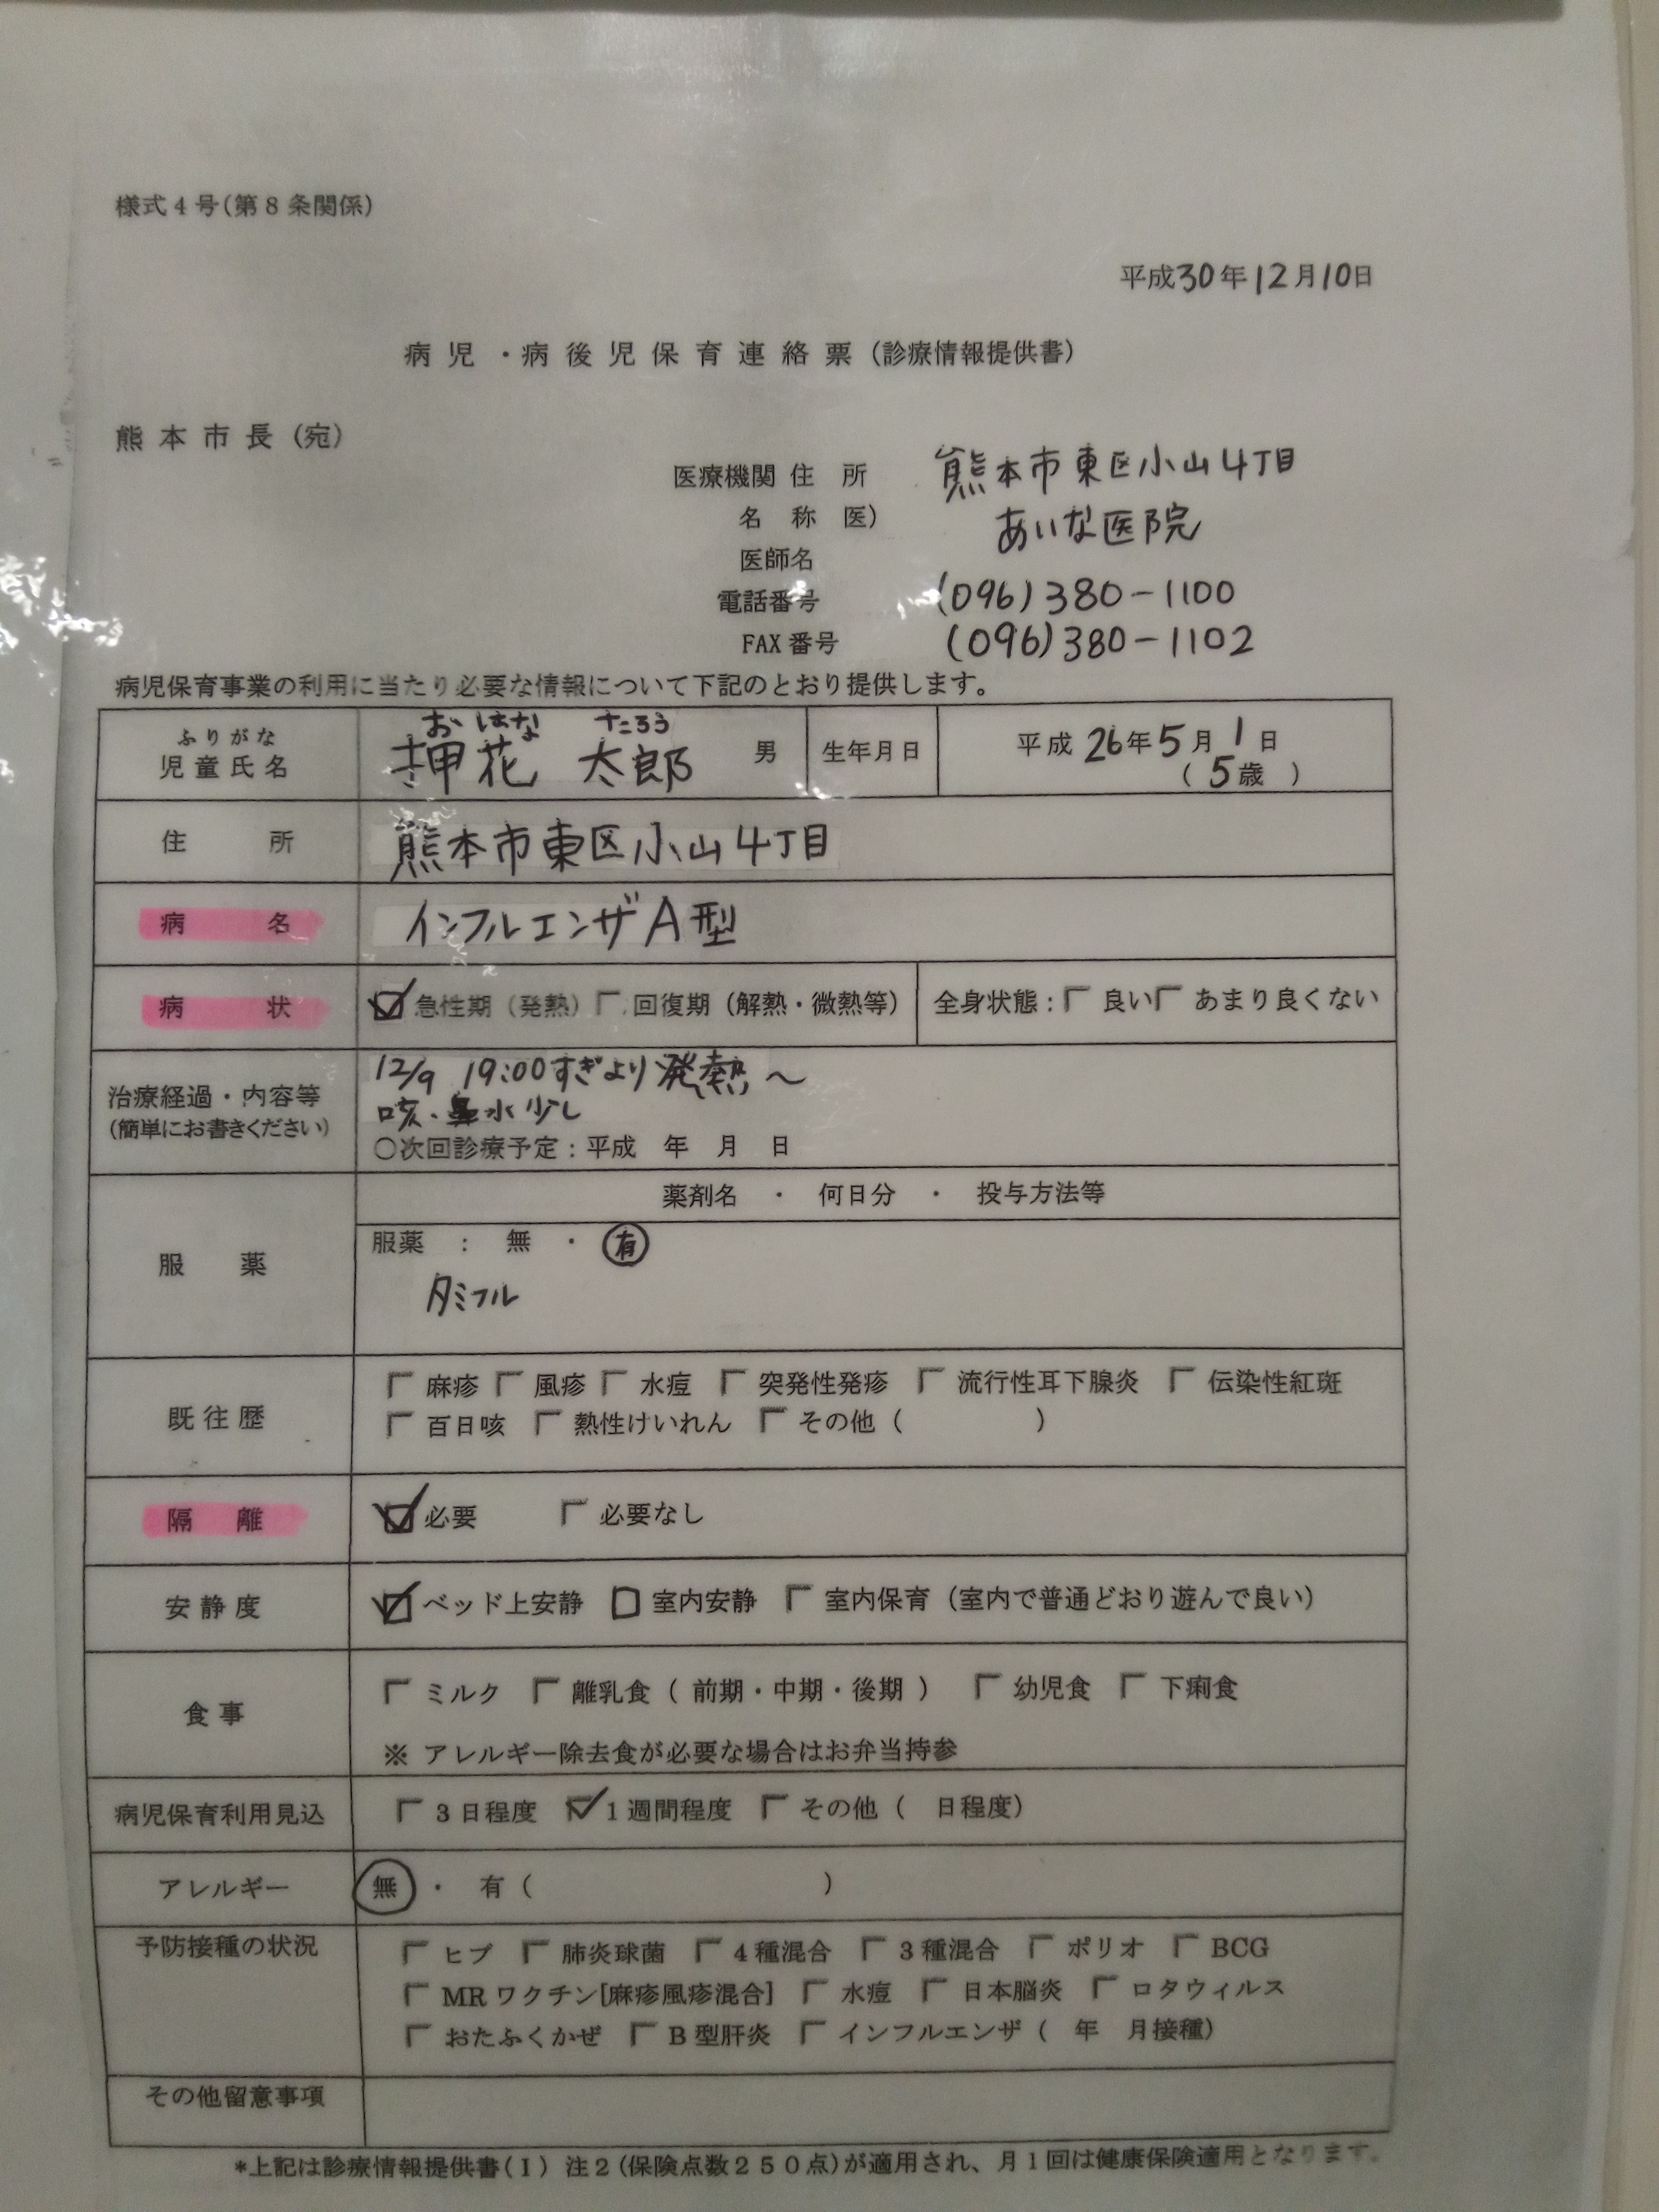 様式4号(第8条関係)
平成30年12月10日
病児・病後児保育連絡票(診療情報提供書)
熊本市長(宛)
医療機関 住所 熊本市東区小山4丁目
名称 医) あいな医院
医師名
電話番号 (096)380-1100
FAX番号 (096)380-1102
病児保育事業の利用に当たり必要な情報について下記のとおり提供します。
ふりがな おはな たろう
児童氏名 押花 太郎 男 生年月日 平成26年5月1日
(5歳)
住所 熊本市東区小山4丁目
病名 インフルエンザA型
病状 ☑急性期(発熱) □回復期(解熱・微熱等) 全身状態:□良い □あまり良くない
12/9 19:00すぎより発熱〜
治療経過・内容等 咳・鼻水少し
(簡単にお書きください) ○次回診療予定:平成 年 月 日
薬剤名 ・ 何日分 ・ 投与方法等
服薬 服薬 : 無 ・ 有
タミフル
既往歴 □麻疹 □風疹 □水痘 □突発性発疹 □流行性耳下腺炎 □伝染性紅斑
□百日咳 □熱性けいれん □その他( )
隔離 ☑必要 □必要なし
安静度 ☑ベッド上安静 □室内安静 □室内保育(室内で普通どおり遊んで良い)
食事 □ミルク □離乳食(前期・中期・後期) □幼児食 □下痢食
※ アレルギー除去食が必要な場合はお弁当持参
病児保育利用見込 □3日程度 ☑1週間程度 □その他( 日程度)
アレルギー 無 ・ 有( )
予防接種の状況 □ヒブ □肺炎球菌 □4種混合 □3種混合 □ポリオ □BCG
□MRワクチン[麻疹風疹混合] □水痘 □日本脳炎 □ロタウィルス
□おたふくかぜ □B型肝炎 □インフルエンザ( 年 月接種)
その他留意事項
*上記は診療情報提供書(I)注2(保険点数250点)が適用され、月1回は健康保険適用となります。